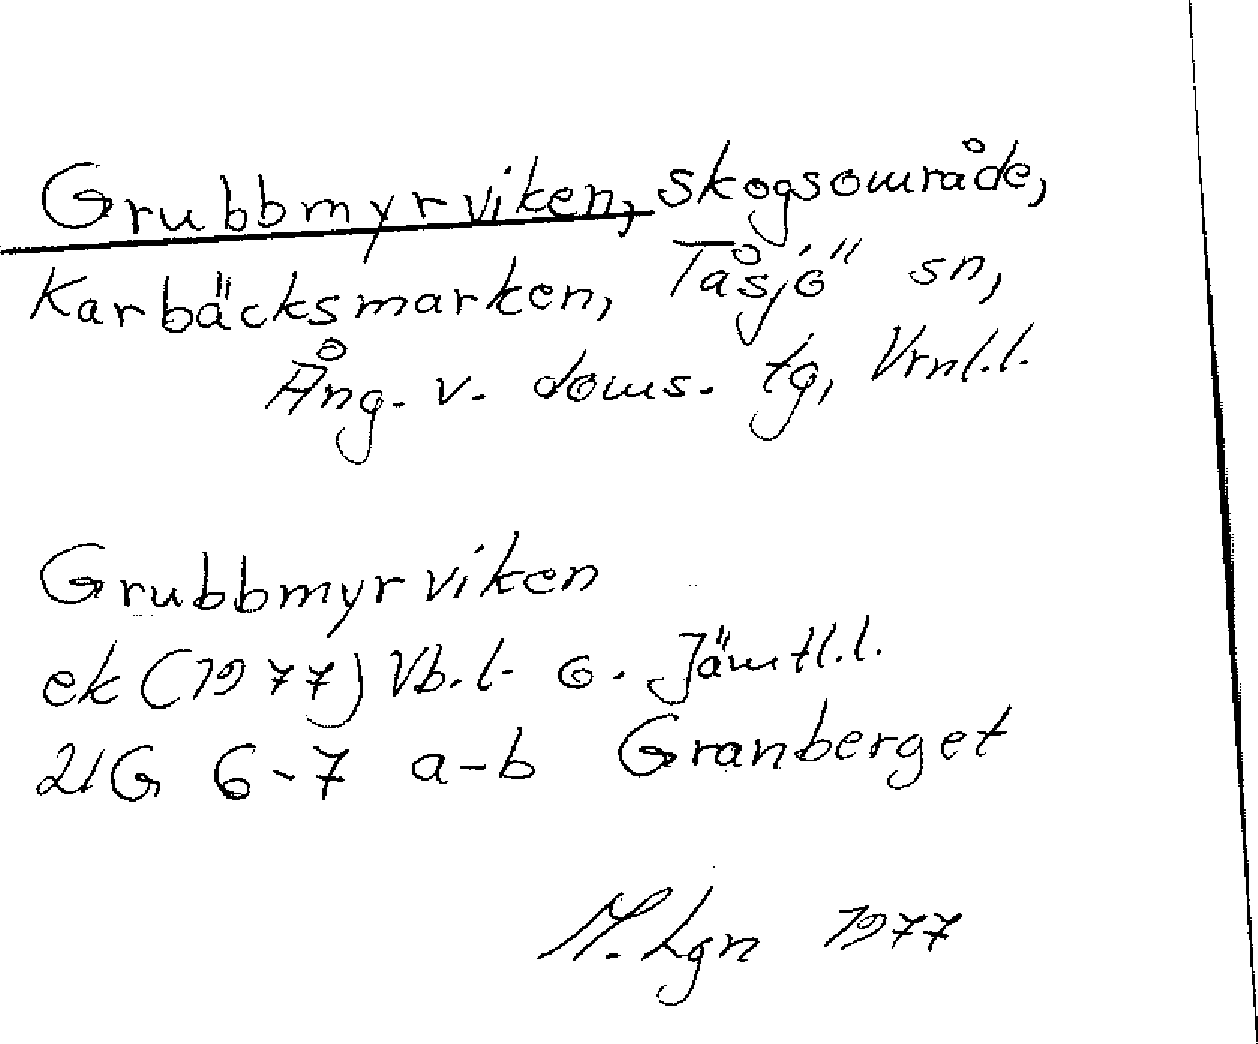 Grubbmyrviken, skogsområde,
Karbäcksmarken, Tåsjö sn,
Ång. v. doms. tg, Vrnl.l.
Grubbmyrviken
ek (1977) Vb.l. o. Jämtl.l.
21G 6-7 a-b Granberget
M. Lgn 1977